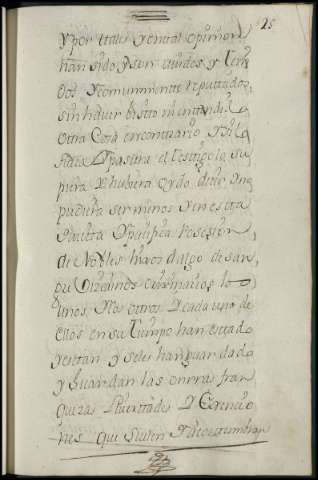 25
y por tales y en tal opinion
han sido y son avidos y teni
dos y comunmente reputtados
sin haver bistto ni enttendido
otra Cosa en contrario y si la
hubiera o pasara el testigo lo su
piera y hubiera oydo decir y no
pudiera ser menos y en esta
quieta y pacifica Posesion,
de Nobles hijos dalgo de san
gre
unos y los otros y cada uno de
ellos en su tiempo han estado
y estan y se les han guardado
y Guardan las onrras fran
quezas Livertades y Exencio
nes que suelen y acostumbran